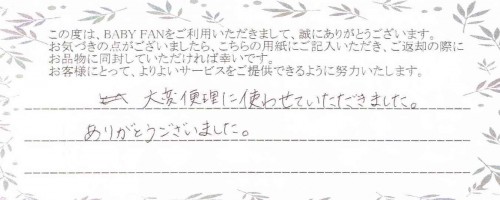 この度は、BABY FANをご利用いただきまして、誠にありがとうございます。
お気づきの点がございましたら、こちらの用紙にご記入いただき、ご返却の際に
お品物に同封していただければ幸いです。
お客様にとって、よりよいサービスをご提供できるように努力いたします。
大変便理に使わせていただきました。
ありがとうございました。